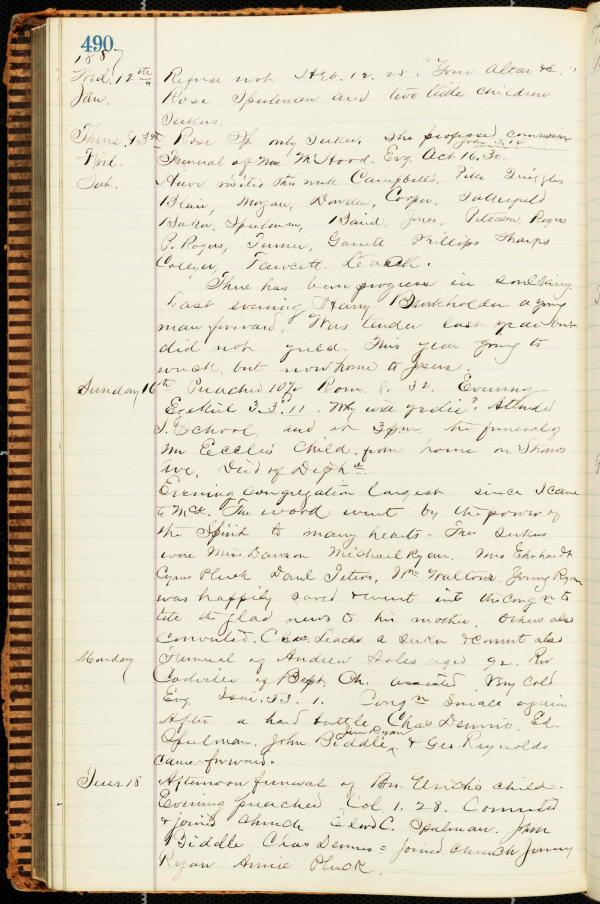 490
1887
Wed. 12th Refuse not Heb. 12. 25. "Your altar &c."
Jan. Rose Spulman and two little children
Seekers.
Thurs. 13th Rose Sp. only Seeker. She professed conversion
John 3.14
Funeral of Mrs McHood. Evg. Act 16.30.
Have visited this week. Campbell's, Pike
Blair, Morgan, Dowden, Cooper,
Baker, Spulman, Baird, Jones, Peterson, Rogers
P. Rogers, Turner, Garrett Phillips Sharps
Fawcett. Leach.
There has been progress in soul saving
Last evening Harry Burkholder a young
man forward. Was tender last year but
did not yield. This year going to
wreck, but now home to Jesus.
Sunday 16th Preached 10½ Rom. 8. 32. Evening
Ezekiel 33.11. Why will ye die? Attended
S. School, and at 3 pm the funeral of
Mr Eccles Child from home on Shaws
Ave. Died of Diph
Evening Congregation largest since I came
to McK. The word went by the power of
the Spirit to many hearts - The seekers
were Miss Dawson Michael Ryan. Mrs Ehrhardt
Cyrus Pluck Daul Peters, Wm Walton. Young Ryan
was happily saved & went into the Congn to
tell the glad news to his mother. Others also
converted. Chas. Leache a seeker & convert also
Monday Funeral of Andrew Aoles aged 92. Rev
of Bapt. Ch. assisted. Very cold
Evg Isai. 53. 1. Congn small again
After a hard battle Chas Dennis. Ed.
Spulman. John Biddle, Jim Ryan & Geo Reynolds
came forward.
Tues 18 Afternoon funeral of Bro. Urich's child.
Evening preached Col 1. 28. Converted
& joined church Edwd C. Spulman. John
Biddle Chas Dennis = joined church Jimmy
Ryan. Annie Pluck.